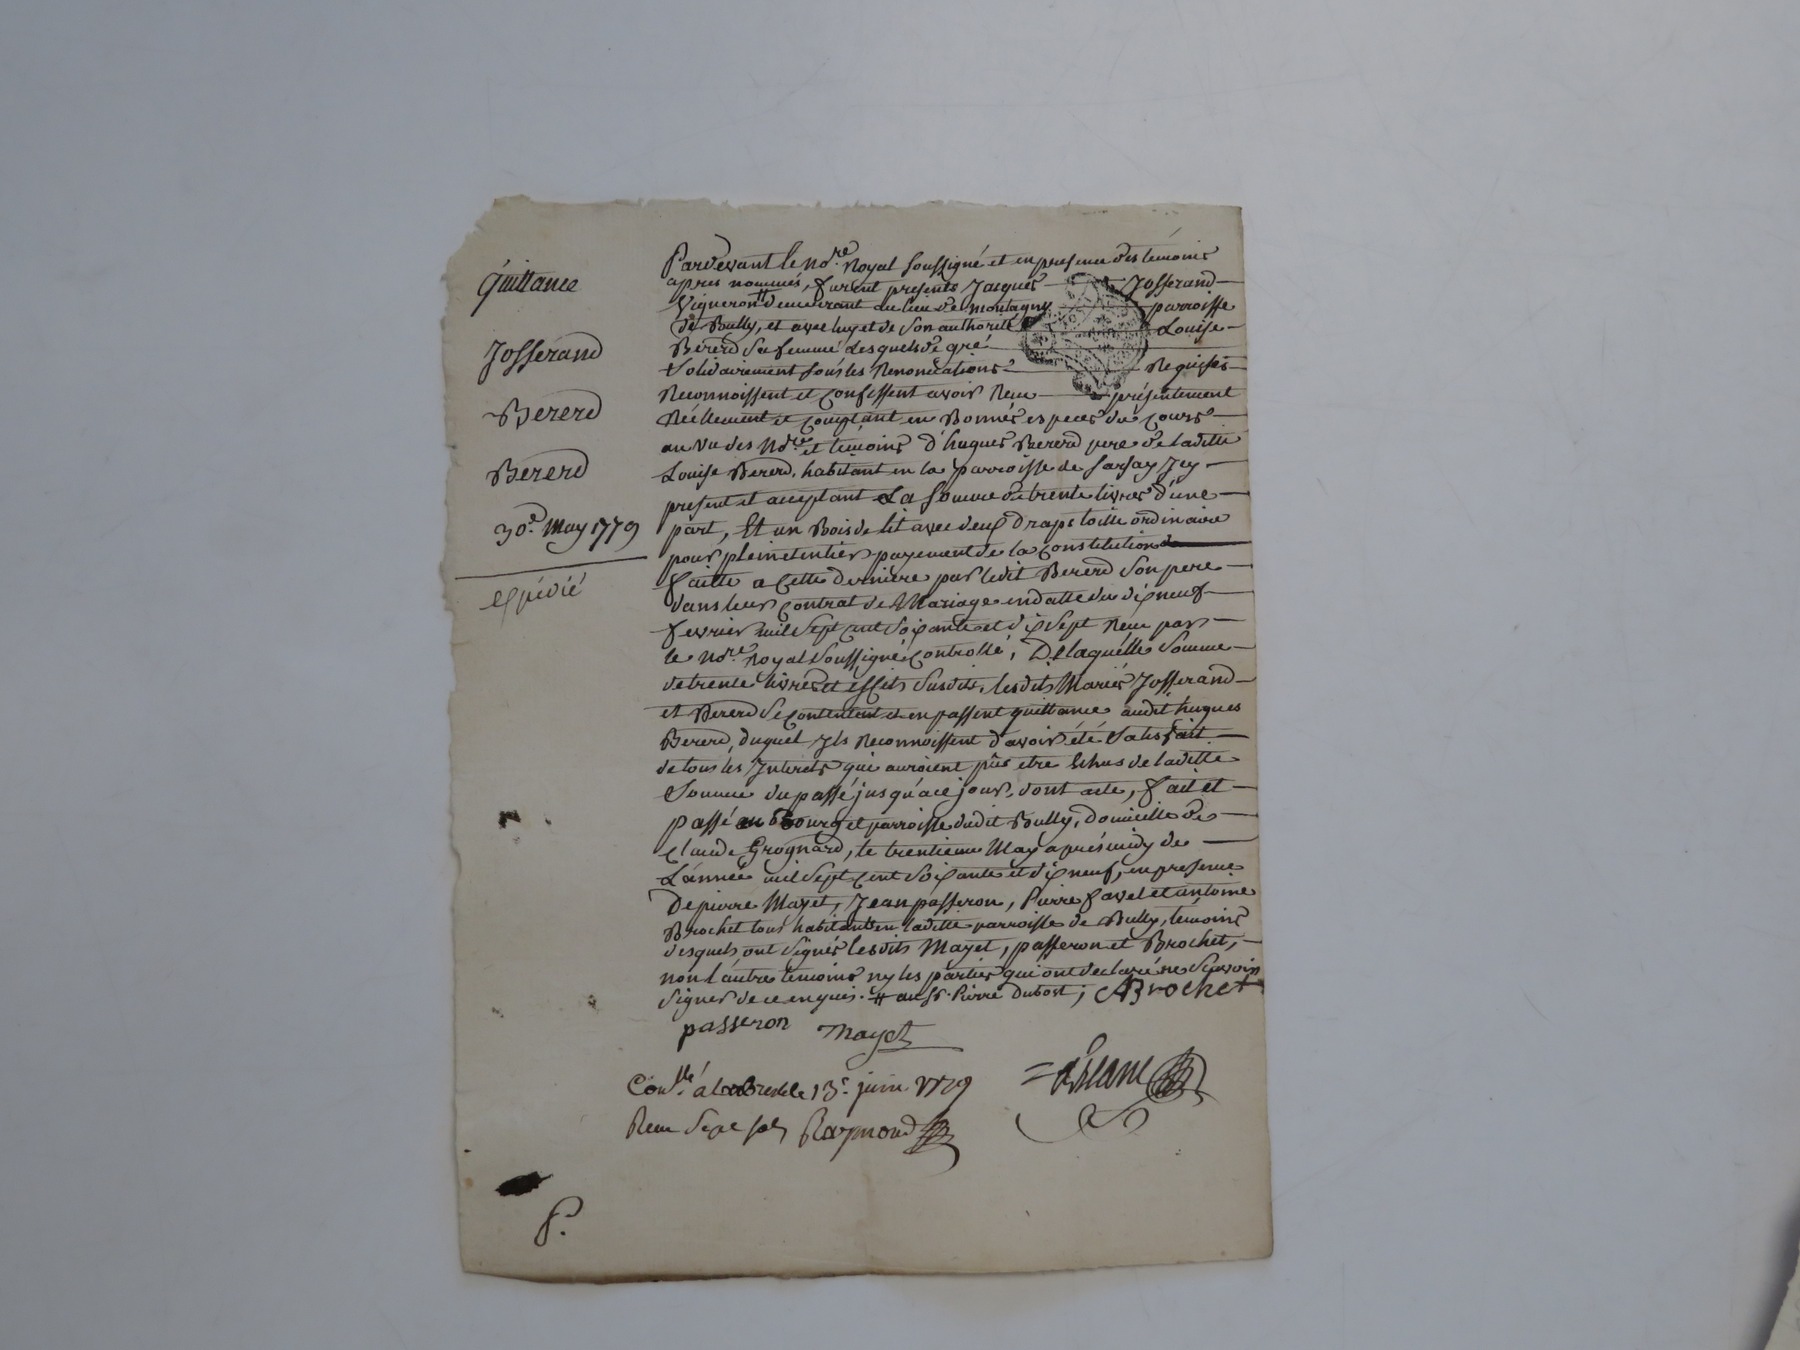 Pardevant le No.re Royal soussigné et en presence des témoins
quittance
apres nommés, furent presents Jacques Josserand
Vigneron # demeurant au lieu de Montagny parroisse
de Bully, et avec luy et de son authorité Louise
Josserand
Bererd sa femme Lesquels de gré
solidairement sous les Renonciations Requises
Reconnoissent et confessent avoir Reçu présentement
Bererd
Réellement et comptant en Bonnes especes du Cours
au vu des No.re et témoins d'hugues Bererd pere de laditte
Bererd
Louise Bererd, habitant en la parroisse de Sarsay Icy
present et acceptant La somme de trente livres d'une
30.e May 1779
part, Et un Bois de lit avec deux draps toille ordinaire
pour plein et entier payement de la Constitution
expédié
faitte a Cette derniere par ledit Bererd son pere
dans leur Contrat de Mariage en datte du dixneuf
fevrier mil sept cent soixante et dix sept Reçu par
le No.re Royal soussigné Controllé, De laquelle somme
de trente livres et effets susdits, lesdits Mariés Josserand
et Bererd se contentent et en passent quittance audit hugues
Bererd, duquel Ils Reconnoissent d'avoir été satisfait
de tous les Interets qui auroient pûs etre Echus de laditte
somme du passé jusqu'a ce jour, dont acte, fait et
passé au Bourg et parroisse dudit Bully, Domicille de
Claude Grognard, le trentieme May après midy de
L'année mil sept cent soixante et dixneuf, en presence
De pierre Mayet, Jean passeron, Pierre favel et antoine
Brochet tous habitants en laditte parroisse de Bully, témoins
desquels ont signés lesdits Mayet, passeron et Brochet,
non l'autre témoins ny les parties qui ont declaré ne sçavoir
signer de ce enquis. # au sr. Pierre Dubost; ABrochet
passeron Mayet
Con.llé a la Bresle le 13.e juin 1779
Reçu Sept sols Raymond